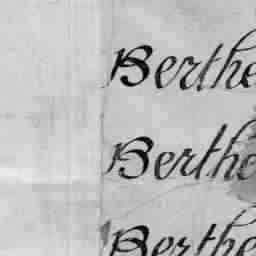 Berthe
Berthe
Berthe